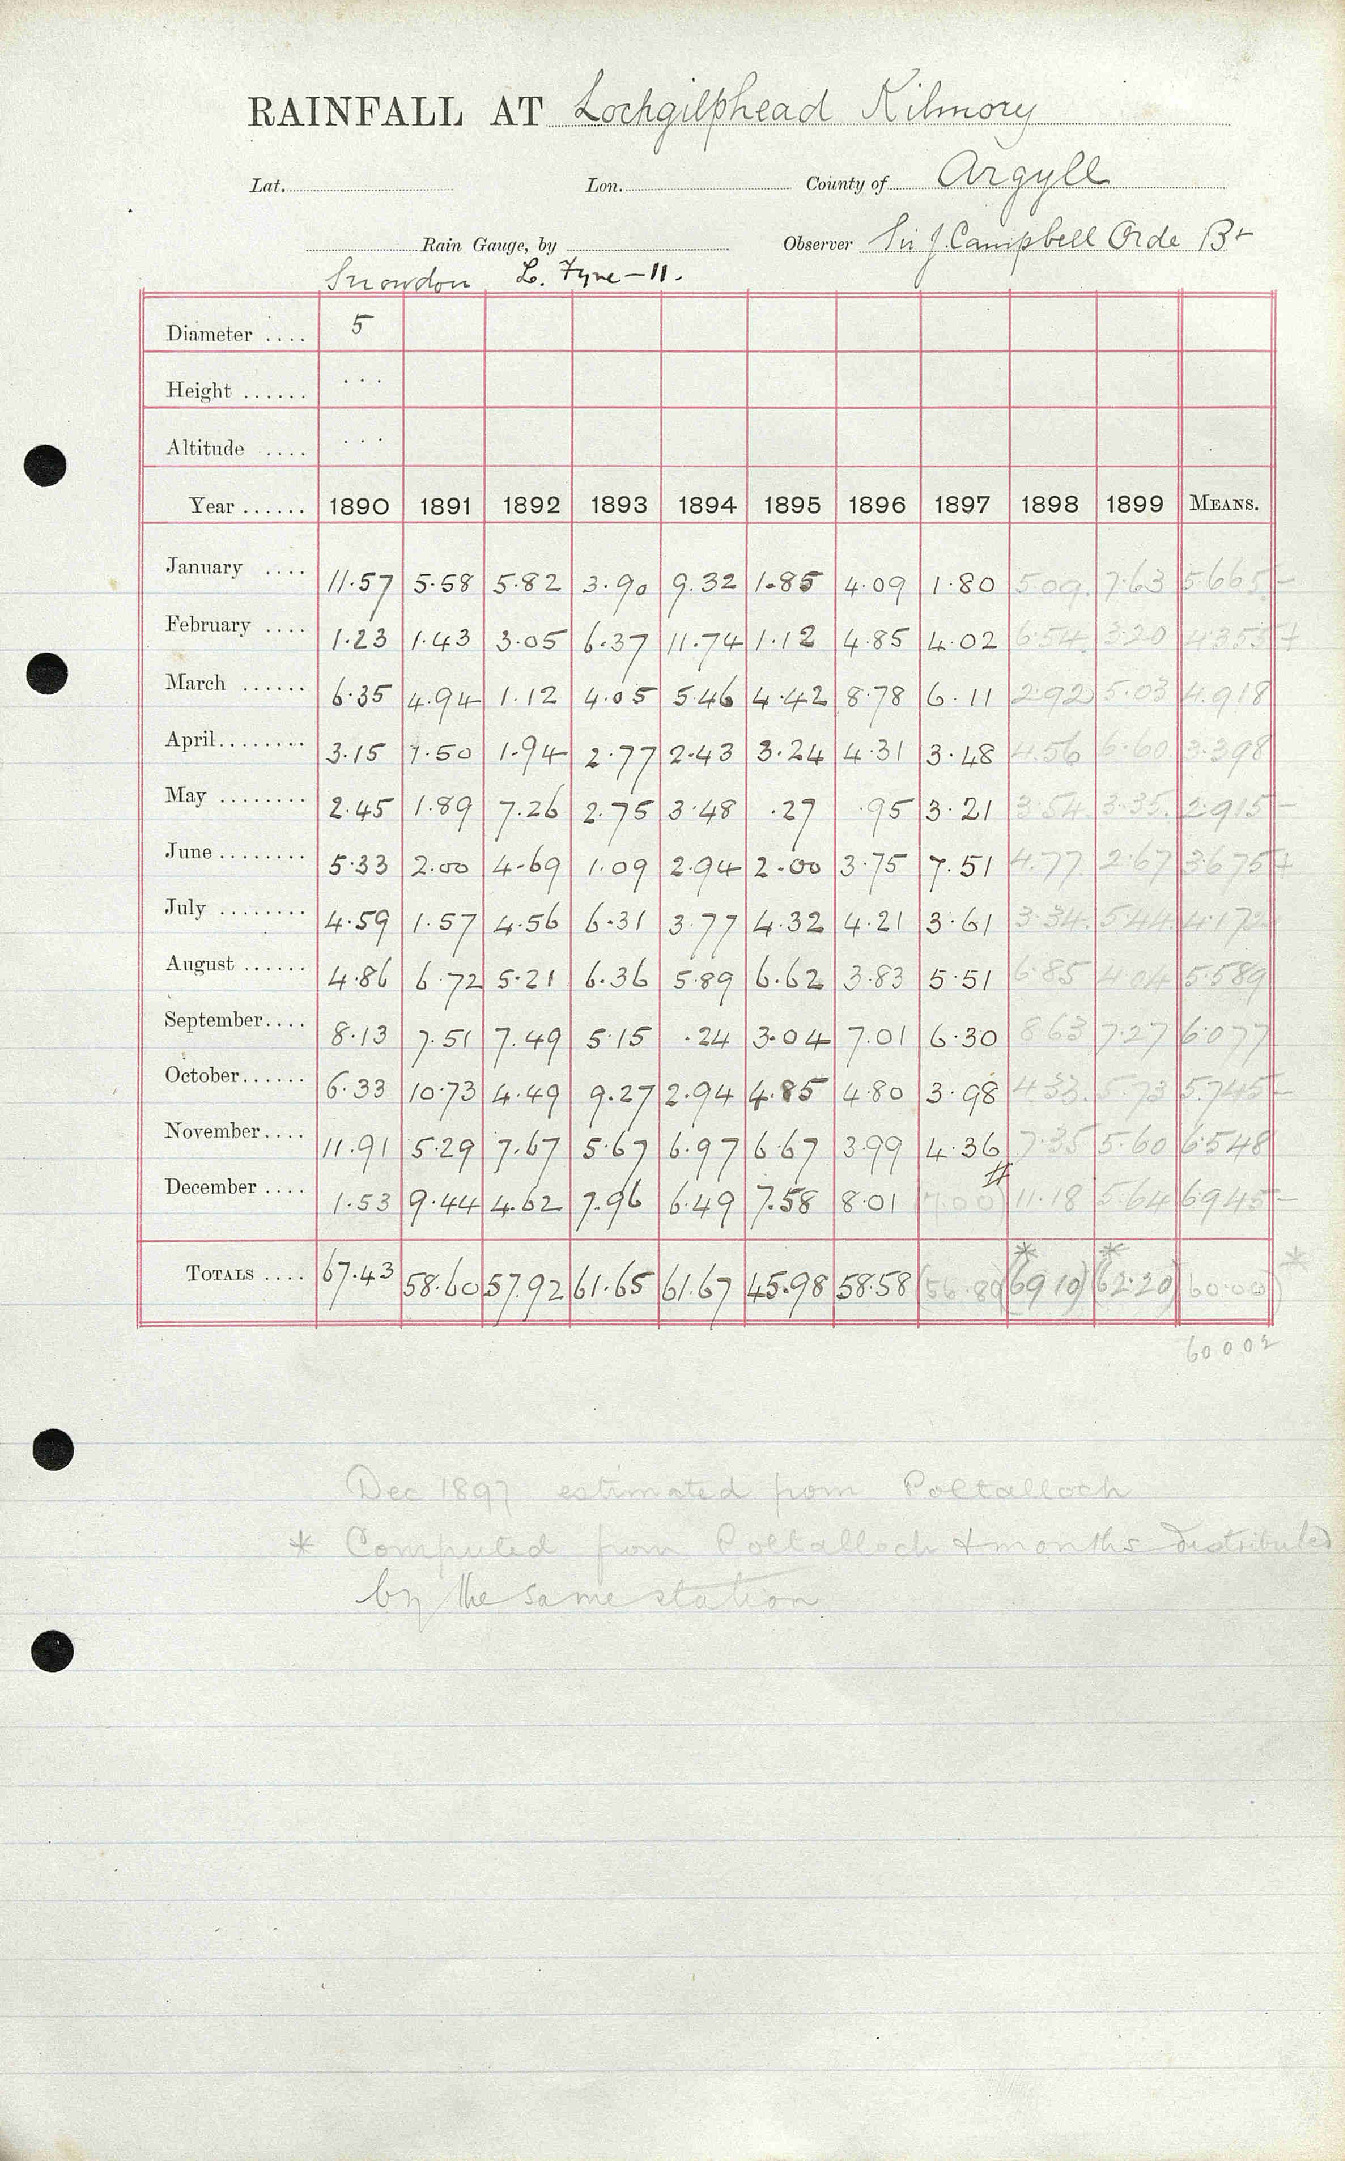 RAINFALL AT Lochgilphead Kilmory
Lat. Lon. County of Argyll
Rain Gauge, by Observer Sir J Campbell Orde Bt
Snowdon L. Fyne - 11.
Diameter .... 5
Height ...... ...
Altitude .... ...
Year ...... 1890 1891 1892 1893 1894 1895 1896 1897 1898 1899 MEANS.
January .... 11.57 5.58 5.82 3.90 9.32 1.85 4.09 1.80 5.09 7.63 5.665 -
February .... 1.23 1.43 3.05 6.37 11.74 1.12 4.85 4.02 6.54 3.20 4.355 +
March ...... 6.35 4.94 1.12 4.05 5.46 4.42 8.78 6.11 2.92 5.03 4.918
April........ 3.15 1.50 1.94 2.77 2.43 3.24 4.31 3.48 4.56 6.60 3.398
May ........ 2.45 1.89 7.26 2.75 3.48 .27 .95 3.21 3.54 3.35 2.915 -
June ........ 5.33 2.00 4.69 1.09 2.94 2.00 3.75 7.51 4.77 2.67 3.675 +
July ........ 4.59 1.57 4.56 6.31 3.77 4.32 4.21 3.61 3.34 5.44 4.172
August ...... 4.86 6.72 5.21 6.36 5.89 6.62 3.83 5.51 6.85 4.04 5.589
September.... 8.13 7.51 7.49 5.15 .24 3.04 7.01 6.30 8.63 7.27 6.077
October...... 6.33 10.73 4.49 9.27 2.94 4.85 4.80 3.98 4.33 5.73 5.745 -
November.... 11.91 5.29 7.67 5.67 6.97 6.67 3.99 4.36 7.35 5.60 6.548
December .... 1.53 9.44 4.62 7.96 6.49 7.58 8.01 (7.00) # 11.18 5.64 6.945 -
TOTALS .... 67.43 58.60 57.92 61.65 61.67 45.98 58.58 (56.89) * (69.10) * (62.20) (60.00) *
60 002
Dec 1897 estimated from Poltalloch
* Computed from Poltalloch & months distributed
by the same station